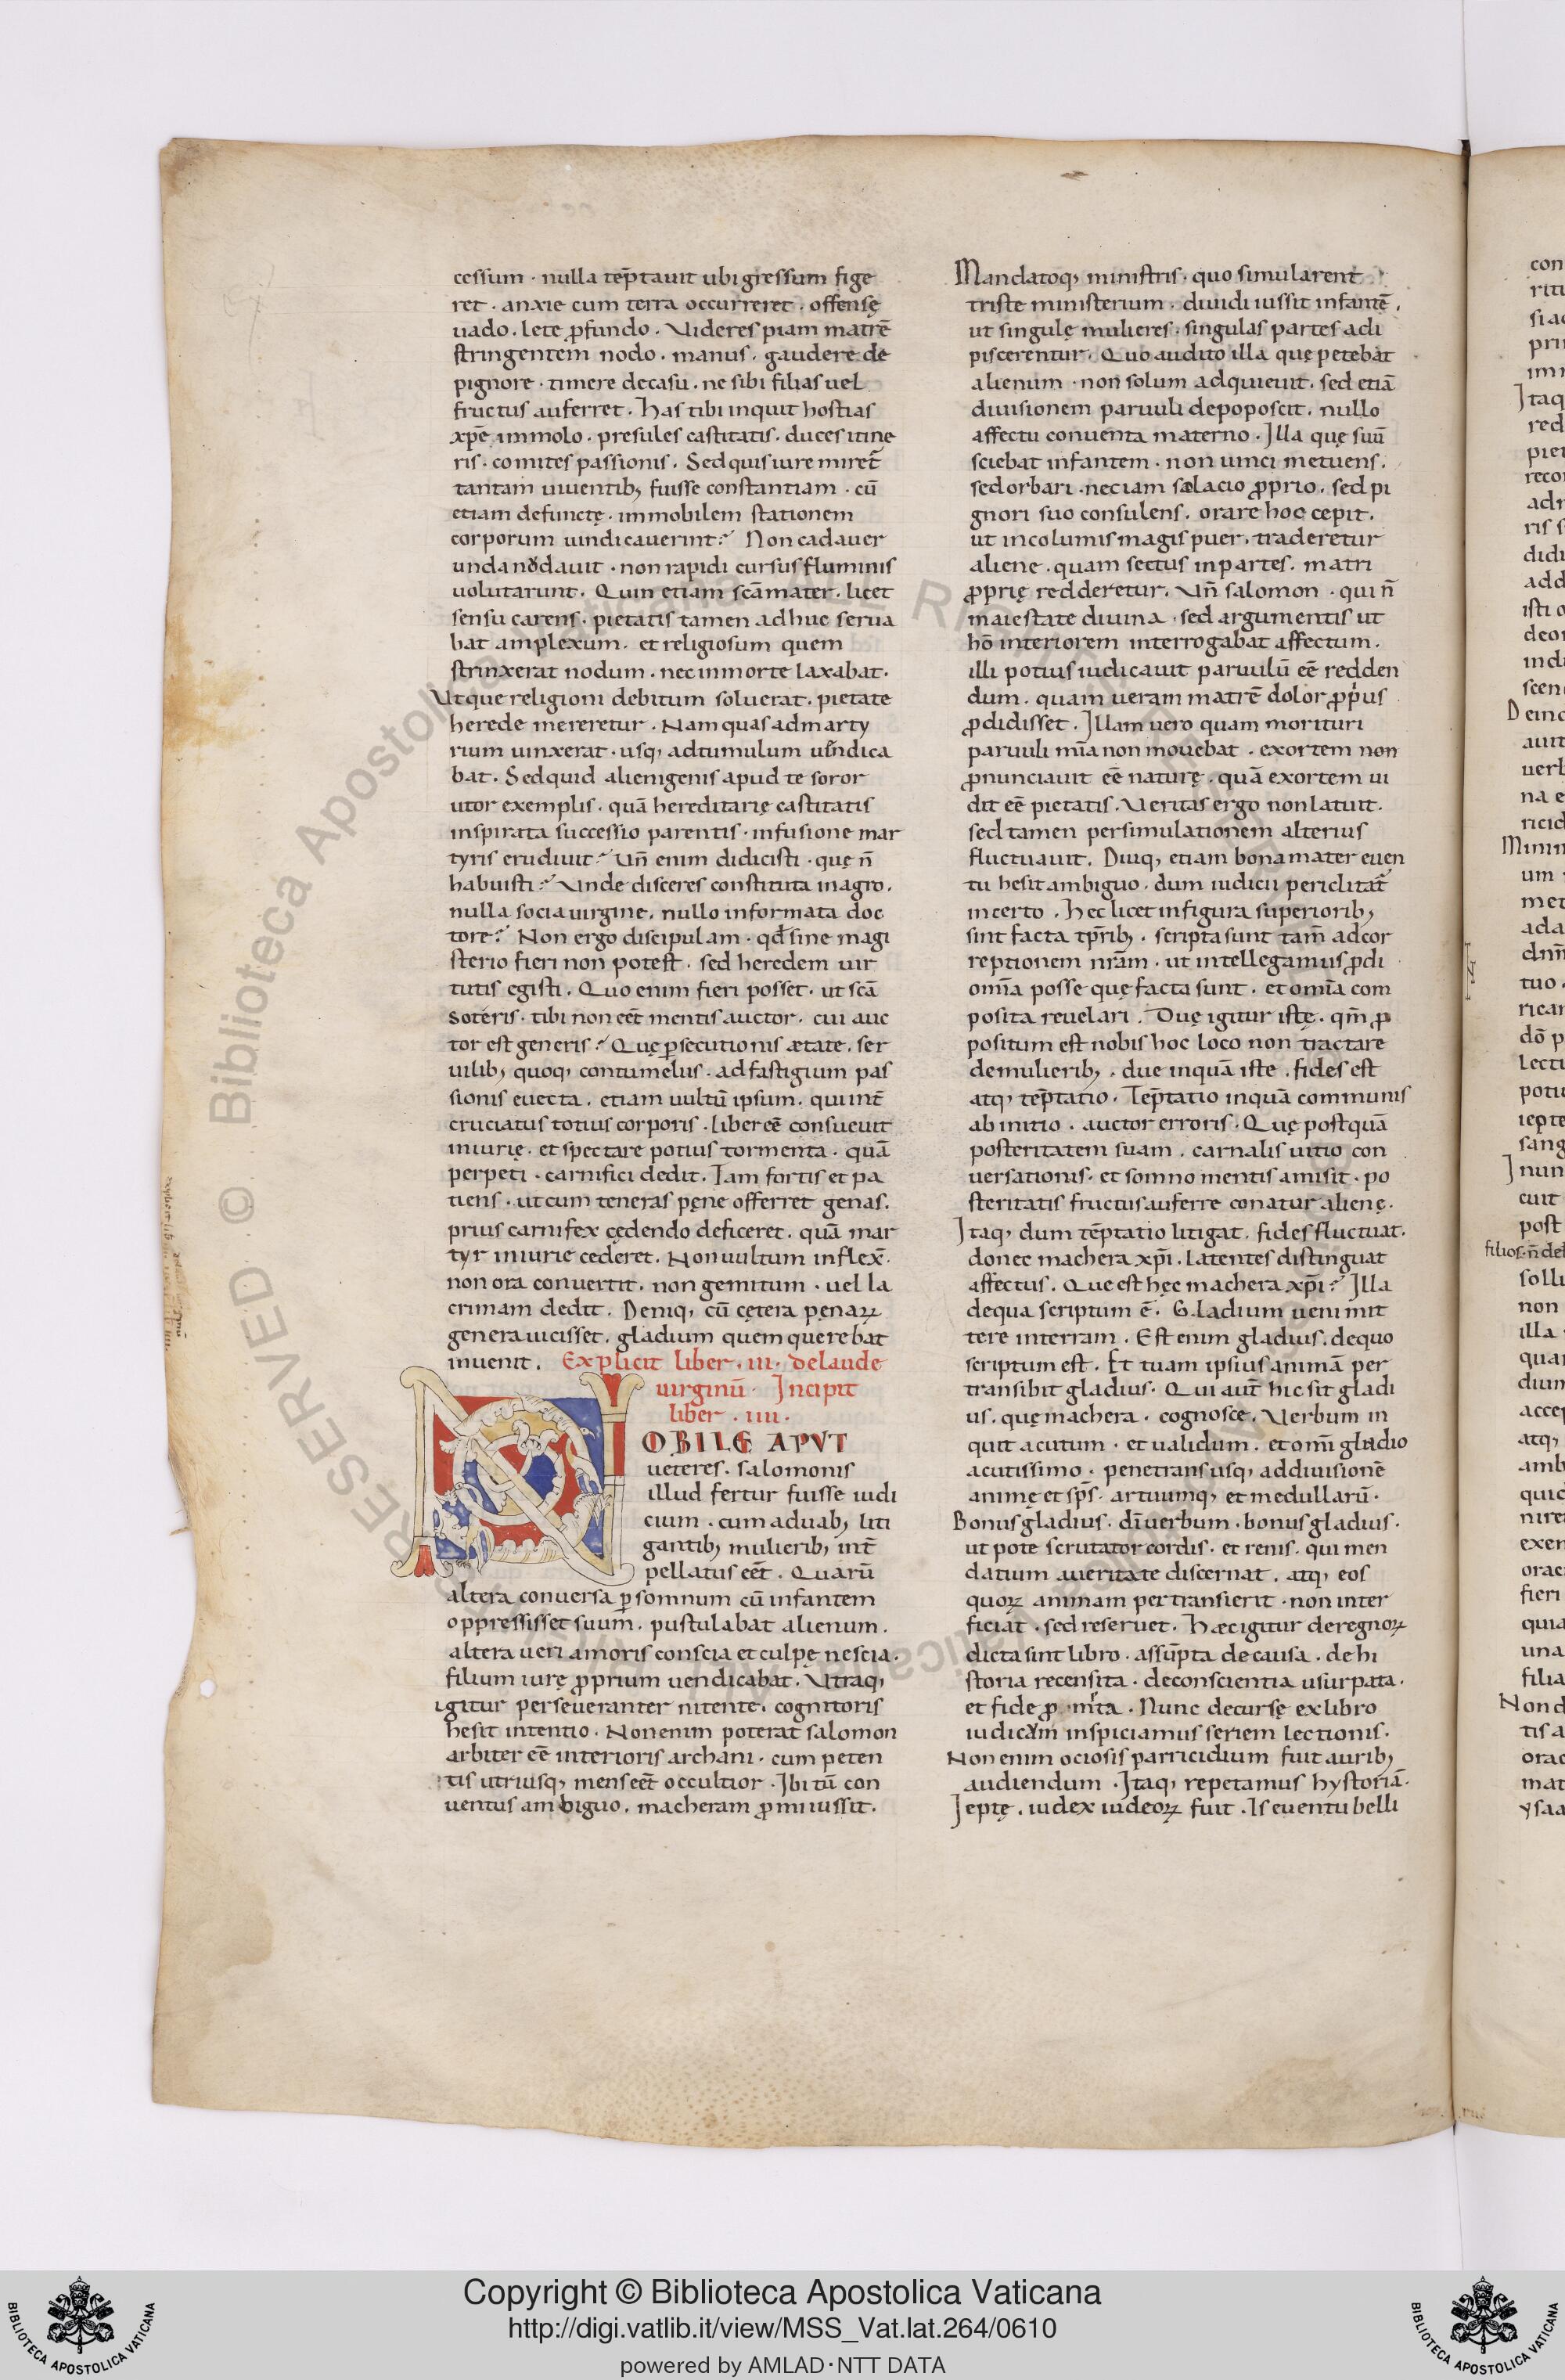 cessum · nulla tep̄tauit ubi gressum fige
ret · anxie cum terra occurreret · offensę
uado · lete ꝓfundo · Videres piam matrē
stringentem nodo · manus · gaudere de
pignore · timere decasu · ne sibi filias uel
fructus auferret · has tibi inquit hostias
xpē immolo · presules castitatis · duces itine
ris · comites passionis · Sed quis iure miret̄
tantam uiuentibꝫ fuisse constantiam · cū
etiam defunctę · immobilem stationem
corporum uindicauerint? Non cadauer
unda nudauit · non rapidi cursus fluminis
uolutarunt · Quin etiam scā mater · licet
sensu carens · pietatis tamen adhuc serua
bat amplexum · et religiosum quem
strinxerat nodum · nec in morte laxabat ·
Vtque religioni debitum soluerat · pietate
herede mereretur · Nam quas ad marty
rium uinxerat · usqꝫ ad tumulum uendica
bat · Sed quid alienigenis apud te soror
utor exemplis · quā hereditarię castitatis
inspirata successio parentis · infusione mar
tyris erudiuit? Vn̄ enim didicisti · quę n̄
habuisti? Vnde disceres constituta in agro ·
nulla socia uirgine · nullo informata doc
tore? Non ergo discipulam · qđ sine magi
sterio fieri non potest · sed heredem uir
tutis egisti · Quo enim fieri posset · ut scā
soteris · tibi non eēt mentis auctor · cui auc
tor est generis? Quę ꝑsecutionis ætate · ser
uilibꝫ quoqꝫ contumeliis · ad fastigium pas
sionis euecta · etiam uultū ipsum · qui int̄
cruciatus totius corporis · liber eē consueuit
iniurię · et spectare potius tormenta · quā
perpeti · carnifici dedit · Tam fortis et pa
tiens · ut cum teneras pęne offerret genas ·
prius carnifex cędendo deficeret · quā mar
tyr iniurie cederet · Non uultum inflex̄ ·
non ora conuertit · non gemitum · uel la
crimam dedit · Deniqꝫ cū cętera pęnaꝝ
genera uicisset · gladium quem querebat
inuenit · Explicit liber · iii · de laude
uirginū · Incipit
liber · iiii ·
NOBILE APVT
ueteres · salomonis
illud fertur fuisse iudi
cium · cum a duabꝫ liti
gantibꝫ mulieribꝫ int̄
pellatus eēt · Quarū
altera conuersa ꝑ somnum cū infantem
oppressisset suum · pustulabat alienum ·
altera ueri amoris conscia et culpę nescia ·
filium iurę ꝓprium uendicabat · Vtraqꝫ
igitur perseueranter nitente · cognitoris
hesit intentio · Non enim poterat salomon
arbiter eē interioris archani · cum peten
tis utriusqꝫ mens eēt occultior · Ibi tū con
uentus ambiguo · macheram ꝓmi iussit ·
Mandatoqꝫ ministris · quo simularent
triste ministerium · diuidi iussit infantē ·
ut singulę mulieres · singulas partes adi
piscerentur · Quo audito illa quę petebat
alienum · non solum adquieuit · sed etiā
diuisionem paruuli depoposcit · nullo
affectu conuenta materno · Illa quę suū
sciebat infantem · non uinci metuens ·
sed orbari · nec iam solacio ꝓprio · sed pi
gnori suo consulens · orare hoc cepit ·
ut incolumis magis puer · traderetur
aliene · quam sectus in partes · matri
ꝓprię redderetur · Vn̄ salomon · qui n̄
maiestate diuina · sed argumentis ut
hō interiorem interrogabat affectum ·
illi potius iudicauit paruulū eē redden
dum · quam ueram matrē dolor ꝓpius
ꝓdidisset · Illam uero quam morituri
paruuli mīa non mouebat · exortem non
ꝓnunciauit eē naturę · quā exortem ui
dit eē pietatis · Veritas ergo non latuit ·
sed tamen per simulationem alterius
fluctuauit · Diuqꝫ etiam bona mater euen
tu hesit ambiguo · dum iudicii periclitat̄
incerto · Hec licet in figura superioribꝫ
sint facta tp̄ribꝫ · scripta sunt tam̄ ad cor
reptionem nr̄am · ut intellegamus ꝓdi
om̄a posse quę facta sunt · et om̄a com
posita reuelari · Duę igitur istę · qm̄ ꝓ
positum est nobis hoc loco non tractare
de mulieribꝫ · due inquā iste · fides est
atqꝫ tep̄tatio · Tep̄tatio inquā communis
ab initio · auctor erroris · Quę postquā
posteritatem suam · carnalis uitio con
uersationis · et somno mentis amisit · po
steritatis fructus auferre conatur alienę ·
Itaqꝫ dum tēptatio litigat · fides fluctuat ·
donec machera xp̄i · latentes distinguat
affectus · Que est hęc machera xp̄i? Illa
de qua scriptum ē · Gladium ueni mit
tere in terram · Est enim gladius · de quo
scriptum est · Et tuam ipsius animā per
transibit gladius · Qui aut̄ hic sit gladi
us · quę machera · cognosce · Verbum in
quit acutum · et ualidum · et om̄i gladio
acutissimo · penetrans usqꝫ ad diuisionē
animę et sp̄s · artuumqꝫ et medullarū ·
Bonus gladius · dī uerbum · bonus gladius ·
ut pote scrutator cordis · et renis · qui men
datium a ueritate discernat · atqꝫ eos
quoꝝ animam pertransierit · non inter
ficiat · sed reseruet · Hæc igitur de regnoꝝ
dicta sint libro · assūpta de causa · de hi
storia recensita · de conscientia usurpata ·
et fide ꝓ mīta · Nunc decursę ex libro
iudicum inspiciamus seriem lectionis ·
Non enim ociosis parricidium fuit auribꝫ
audiendum · Itaqꝫ repetamus hystoriā ·
Ieptę · iudex iudeoꝝ fuit · Is euentu belli
Copyright © Biblioteca Apostolica Vaticana
http://digi.vatlib.it/view/MSS_Vat.lat.264/0610
powered by AMLAD·NTT DATA